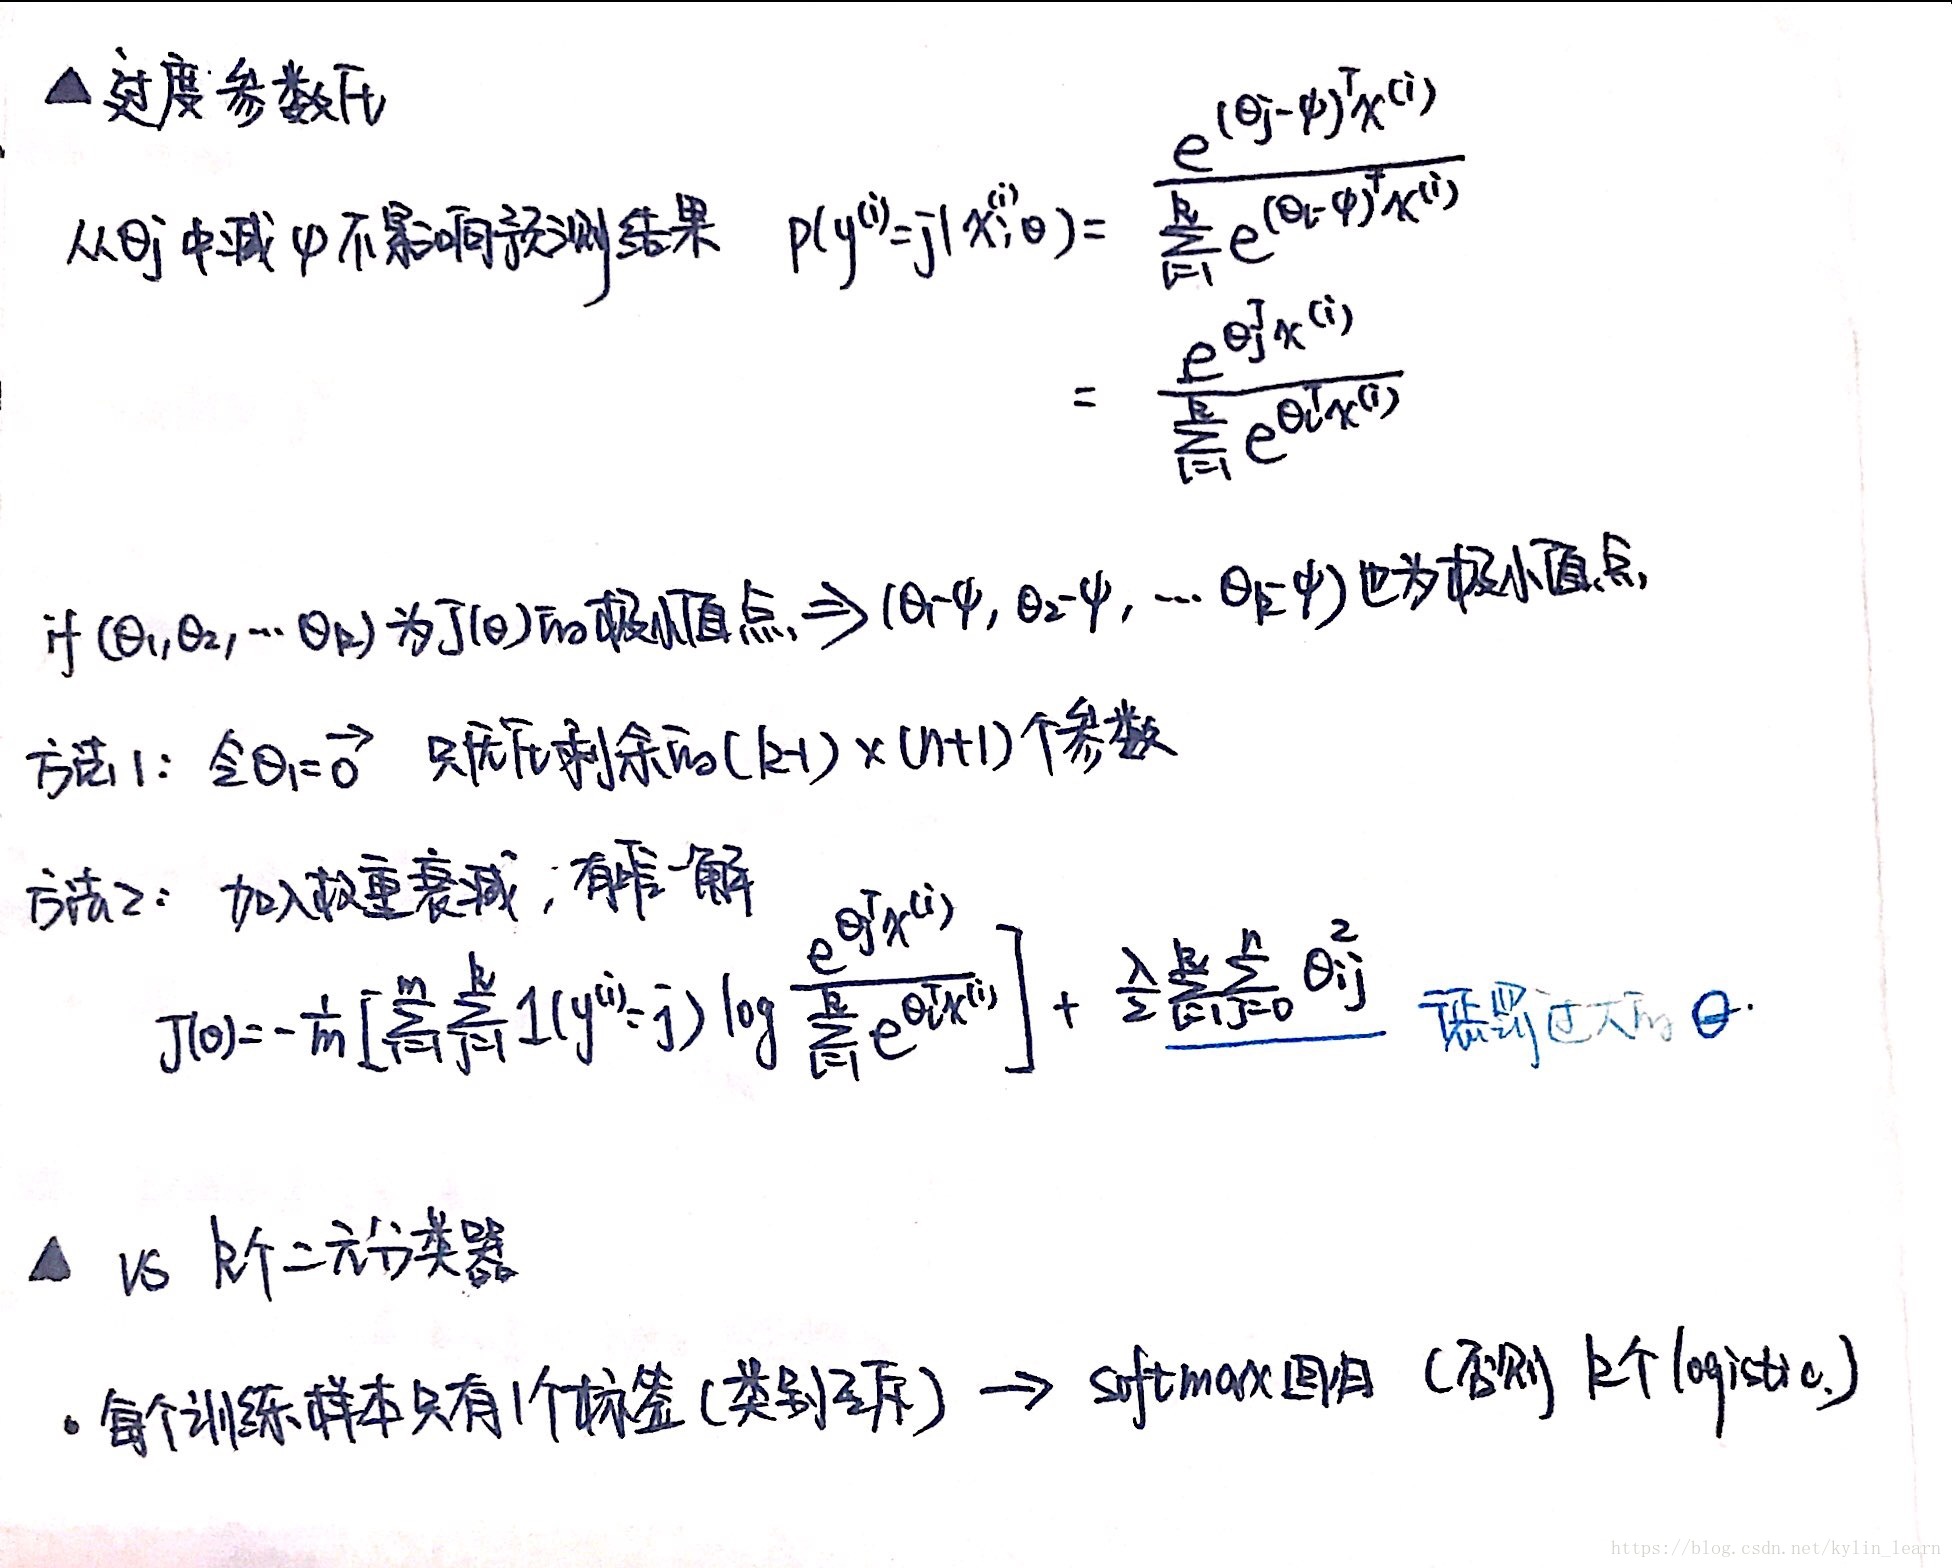 ▲ 过度参数化
从θj中减ψ不影响预测结果 p(y^(i)=j|x^(i);θ) = e^((θj-ψ)^T x^(i)) / Σ_{l=1}^{k} e^((θl-ψ)^T x^(i))
= e^(θj^T x^(i)) / Σ_{l=1}^{k} e^(θl^T x^(i))
if (θ1,θ2,…θk) 为J(θ)的极小值点 ⇒ (θ1-ψ, θ2-ψ, … θk-ψ) 也为极小值点
方法1: 令θ1=0⃗ 只优化剩余的(k-1)×(n+1)个参数
方法2: 加入权重衰减，有唯一解
J(θ)=-1/m [Σ_{i=1}^{m} Σ_{j=1}^{k} 1(y^(i)=j) log e^(θj^T x^(i)) / Σ_{l=1}^{k} e^(θl^T x^(i))] + λ/2 Σ_{i=1}^{k} Σ_{j=0}^{n} θij^2 惩罚过大的θ.
▲ vs k个二元分类器
• 每个训练样本只有1个标签(类别互斥) → softmax回归 (否则 k个logistic.)
https://blog.csdn.net/kylin_learn